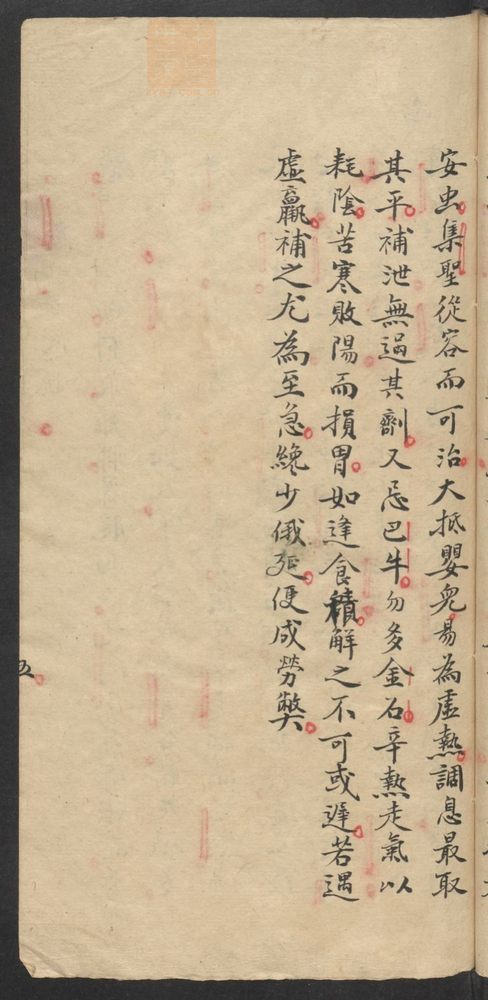 安虫集聖從容而可治大抵嬰兒易為虛熱調息最取
其平補泄無過其劑又忌巴牛勿多金石辛熱走氣以
耗陰苦寒敗陽而損胃如逢食積解之不可或遲若遇
虛羸補之尤為至急纔少俄延便成勞獘
五